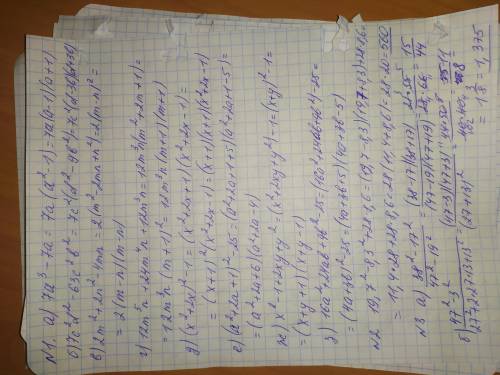 N1. а) 7a³-7a=7a(a²-1)=7a(a-1)(a+1)
б) 7c²d²-63c²b²=7c²(d²-9b²)=7c²(d-3b)(d+3b)
в) 2m²+2n²-4mn=2(m²-2mn+n²)=2(m-n)²=
=2(m-n)(m-n)
г) 12m⁵n+24m⁴n+12m³n=12m³n(m²+2m+1)=
=12m³n(m+1)²=12m³n(m+1)(m+1)
д) (x²+2x)²-1=(x²+2x+1)(x²+2x-1)=
=(x+1)²(x²+2x-1)=(x+1)(x+1)(x²+2x-1)
е) (a²+2a+1)²-25=(a²+2a+1+5)(a²+2a+1-5)=
=(a²+2a+6)(a²+2a-4)
ж) x²-1+2xy+y²=(x²+2xy+y²)-1=(x+y)²-1=
=(x+y+1)(x+y-1)
з) 16a²+24ab+9b²-25=(16a²+24ab+9b²)-25=
=(4a+3b)²-25=(4a+3b+5)(4a+3b-5)
N2 19,7²-8,3²+28·8,6=(19,7-8,3)(19,7+8,3)+28·8,6=
=11,4·28+28·8,6=28(11,4+8,6)=28·20=560
N3 а) 38²-17² / 47²-19² = (38-17)(38+17) / (47-19)(47+19) = / 28·66 = 15 / 44
б) 47²-3² / 27²+2·27·13+13² = (47-3)(47+3) / (27+13)² =